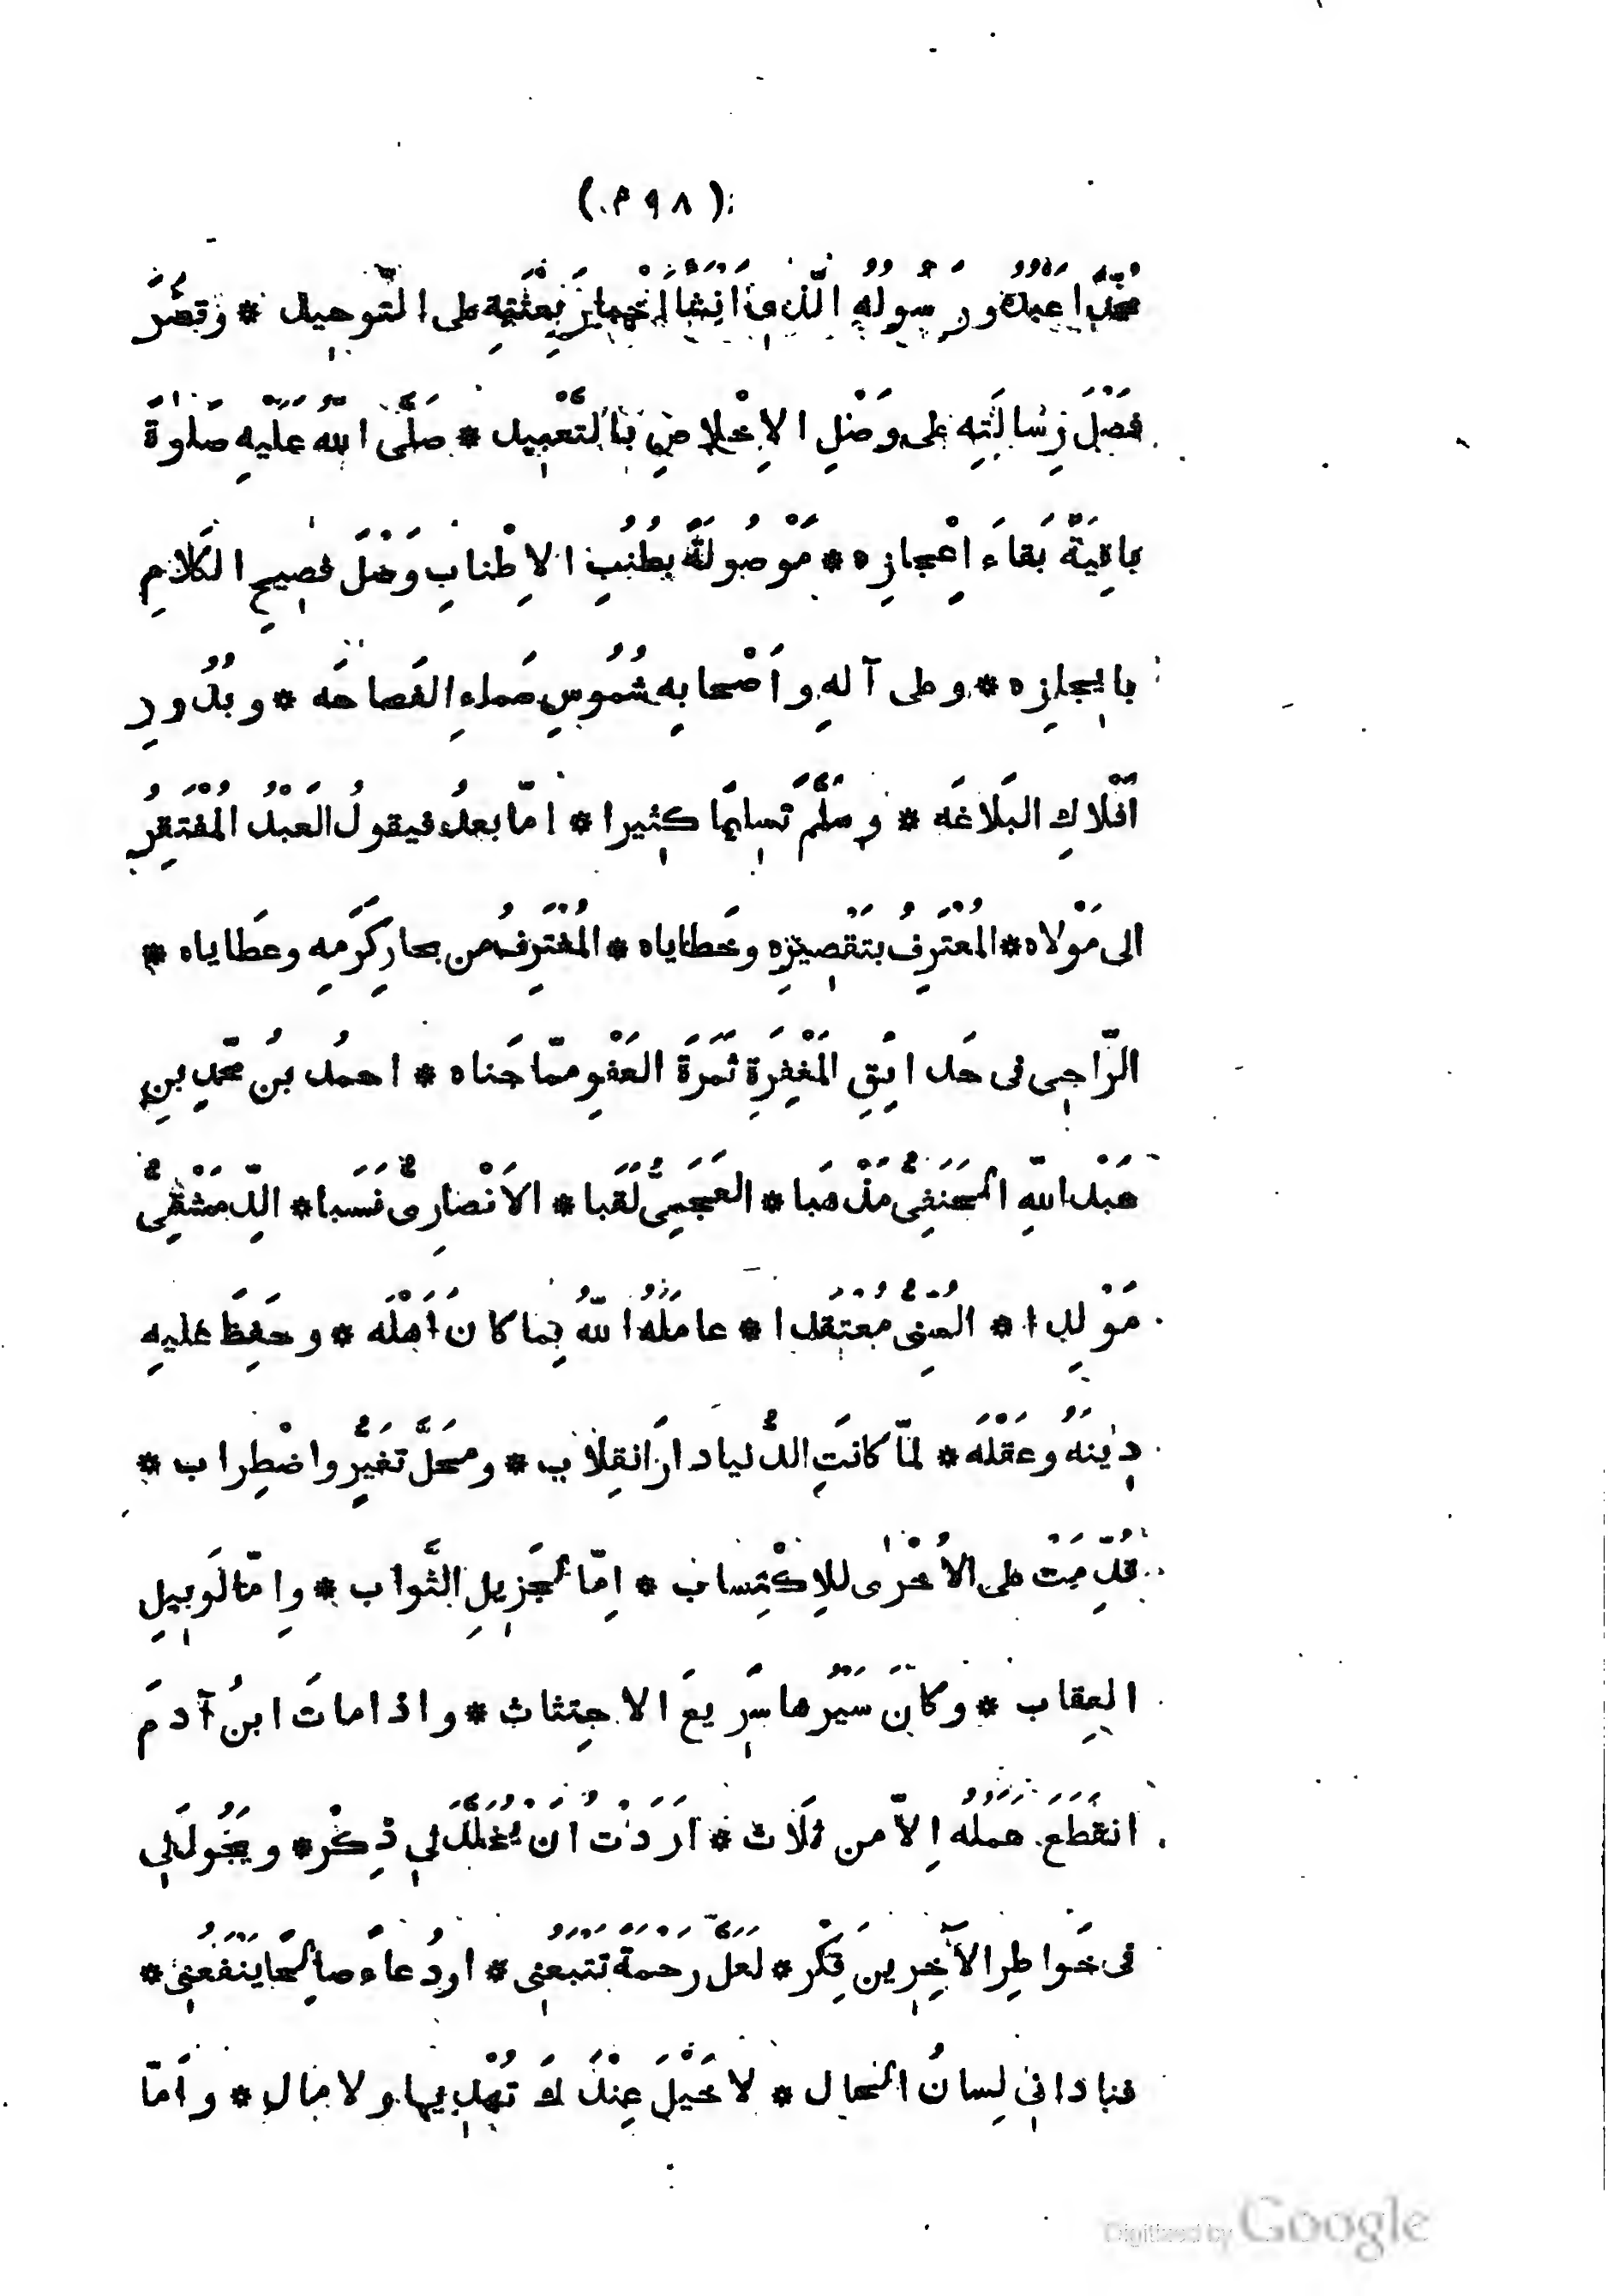 ( ٤٩٨ )
محمّدًا عبدُه ورسُولُه الّذى انشا اخبار بعثته على التّوحيد * وقَصَرَ
فصْلَ رِسالَتِه على وصْلِ الاِخْلاصِ بالتّعبِيد * صَلَّى اللّٰه عليْهِ صَلٰوةً
باقِيَةً بَقاءَ اعْجازِه * مَوْصُولَةً بطُنُبِ الاِطْنابِ وَصْلَ فصِيحِ الكَلامِ
بايجازِه * وعلى آلهِ واَصْحابِه شُمُوسِ سَماءِ الفَصاحَه * وبُدُورِ
اَفْلاكِ البَلاغَه * وسَلَّمَ تسلِيمًا كثِيرا * امّا بعدُ فيقولُ العَبْدُ المُفْتَقِرُ
الى مَوْلاه * المُعْتَرِفُ بتَقْصِيرِه وخَطاياه * المُغْتَرِفُ من بحارِ كَرَمِه وعَطاياه *
الرّاجِى فى حَدائِقِ المَغْفِرَةِ ثمَرَةَ العَفْوِ ممّا جَناه * احمدُ بنُ محمّدِ بنِ
عَبْدِ اللّٰهِ الحَنَفِىُّ مَذْهَبا * العَجَمِىُّ لَقَبا * الاَنْصارِىُّ نَسَبا * الدِّمَشْقِىُّ
مَوْلِدا * السُنِّىُّ مُعتَقَدا * عامَلَهُ اللّٰهُ بِما كانَ اَهْلَه * وحَفِظَ عليهِ
دِينَهُ وعَقْلَه * لمّا كانَتِ الدُّنْيا دارَ انقِلابٍ * ومحَلَّ تغَيُّرٍ واضْطِراب *
قُدِّمَتْ على الاُخْرٰى للاِكْتِساب * اِمّا لجَزِيلِ الثَّواب * واِمّا لوَبِيلِ
العِقاب * وكانَ سَيْرُها سَرِيعَ الاجتِثاث * واذا ماتَ ابنُ آدمَ
انقَطَعَ عملُهُ اِلاّ من ثلاث * اَرَدْتُ انْ يُخَلَّدَ لِى ذِكْر * ويَجُولَ لِى
فى خَواطِرِ الآخِرِينَ فِكْر * لَعَلَّ رَحْمَةً تتبَعُنِى * اودُعاءً صالِحًا يَنْفَعُنِى *
فنادانى لِسانُ الحال * لا خَيْلَ عِنْدَكَ تُهْدِيها ولا مال * واَمّا
Digitized by Google